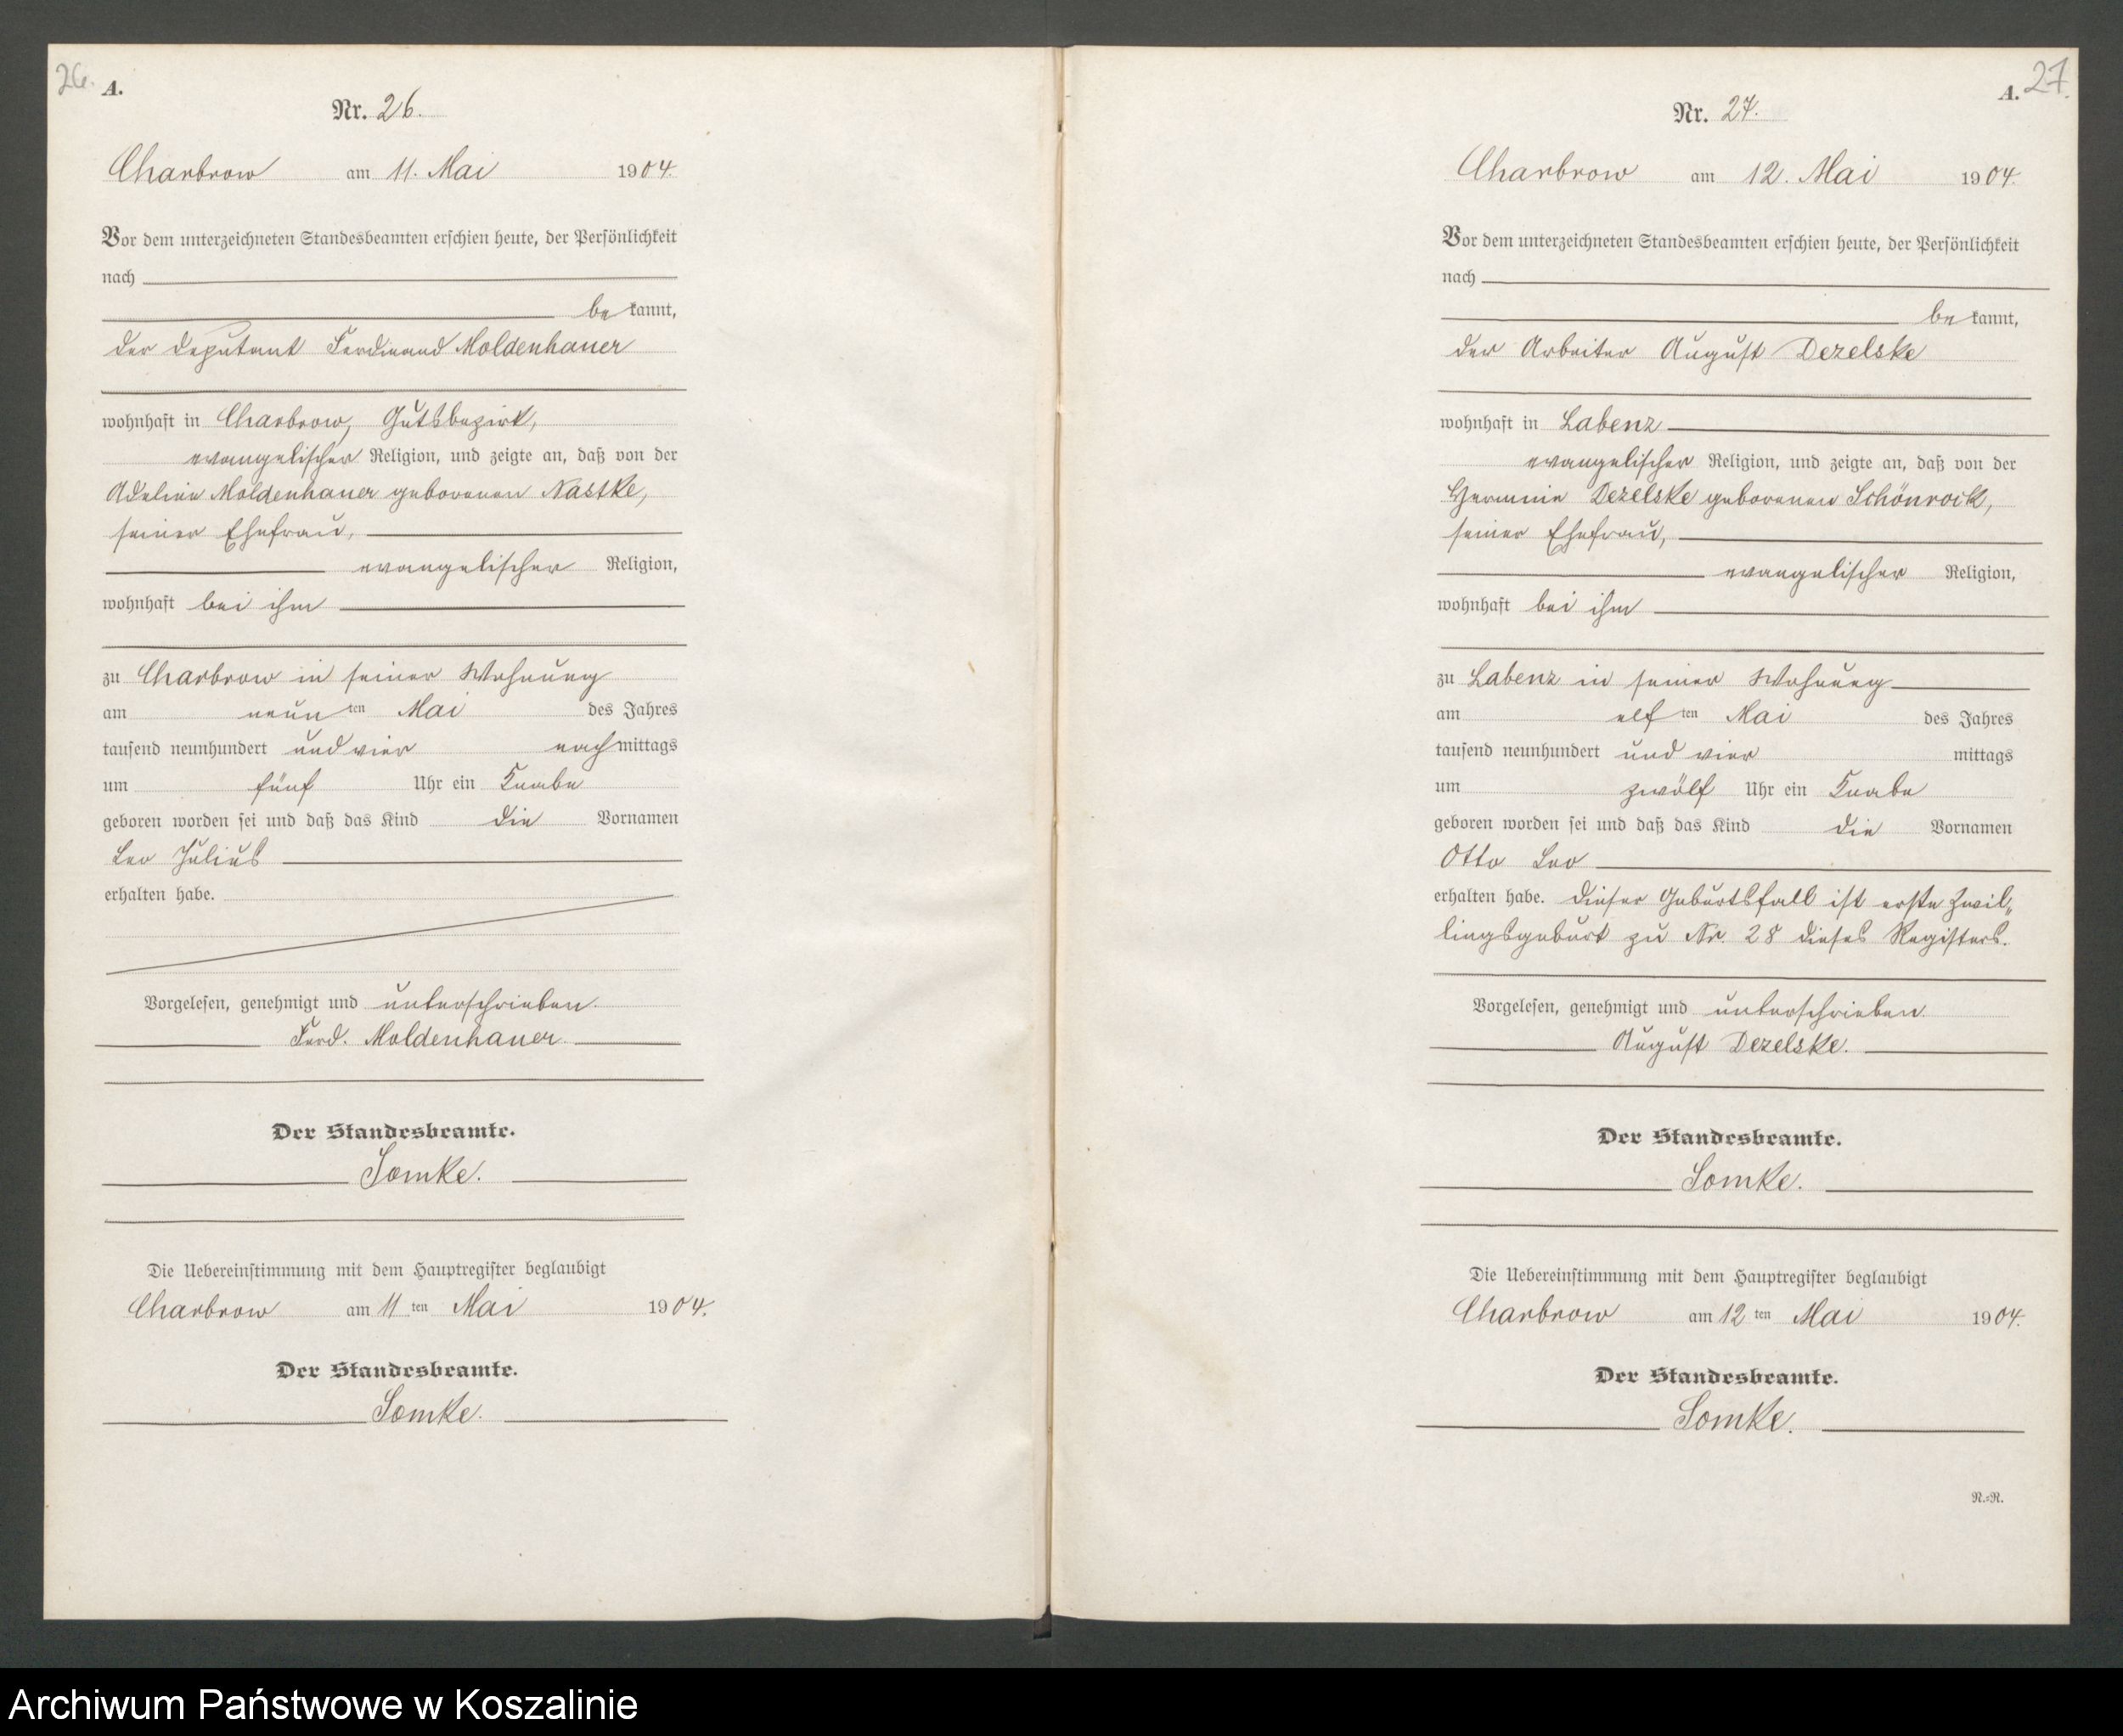 26.
A.
Nr. 26.
Charbrow am 11. Mai 1904.
Vor dem unterzeichneten Standesbeamten erschien heute, der Persönlichkeit
nach
be kannt,
der Deputant Ferdinand Moldenhauer
wohnhaft in Charbrow, Gutsbezirk,
evangelischer Religion, und zeigte an, daß von der
Adeline Moldenhauer geborenen Nastke,
seiner Ehefrau,
evangelischer Religion,
wohnhaft bei ihm
zu Charbrow in seiner Wohnung
am neun ten Mai des Jahres
tausend neunhundert und vier nachmittags
um fünf Uhr ein Knabe
geboren worden sei und daß das Kind die Vornamen
Leo Julius
erhalten habe.
Vorgelesen, genehmigt und unterschrieben.
Ferd. Moldenhauer.
Der Standesbeamte.
Somke.
Die Uebereinstimmung mit dem Hauptregister beglaubigt
Charbrow am 11 ten Mai 1904.
Der Standesbeamte.
Somke.
27.
A.
Nr. 27.
Charbrow am 12. Mai 1904.
Vor dem unterzeichneten Standesbeamten erschien heute, der Persönlichkeit
nach
be kannt,
der Arbeiter August Dezelske
wohnhaft in Labenz
evangelischer Religion, und zeigte an, daß von der
Hermine Dezelske geborenen Schönrock,
seiner Ehefrau,
evangelischer Religion,
wohnhaft bei ihm
zu Labenz in seiner Wohnung
am elf ten Mai des Jahres
tausend neunhundert und vier mittags
um zwölf Uhr ein Knabe
geboren worden sei und daß das Kind die Vornamen
Otto Leo
erhalten habe. Dieser Geburtsfall ist erste Zwil„
lingsgeburt zu Nr. 28 dieses Registers.
Vorgelesen, genehmigt und unterschrieben
August Dezelske.
Der Standesbeamte.
Somke.
Die Uebereinstimmung mit dem Hauptregister beglaubigt
Charbrow am 12 ten Mai 1904.
Der Standesbeamte.
Somke.
N.=R.
Archiwum Państwowe w Koszalinie